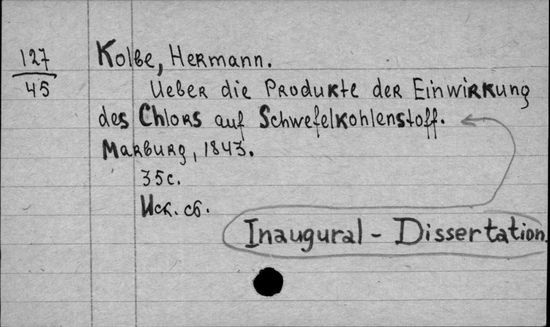 127
45
Kolbe, Hermann.
Ueber die Produkte der Einwirkung
des Chlors auf Schwefelkohlenstoff.
Marburg, 1843.
35с.
Иск. сб.
Inaugural - Dissertation.